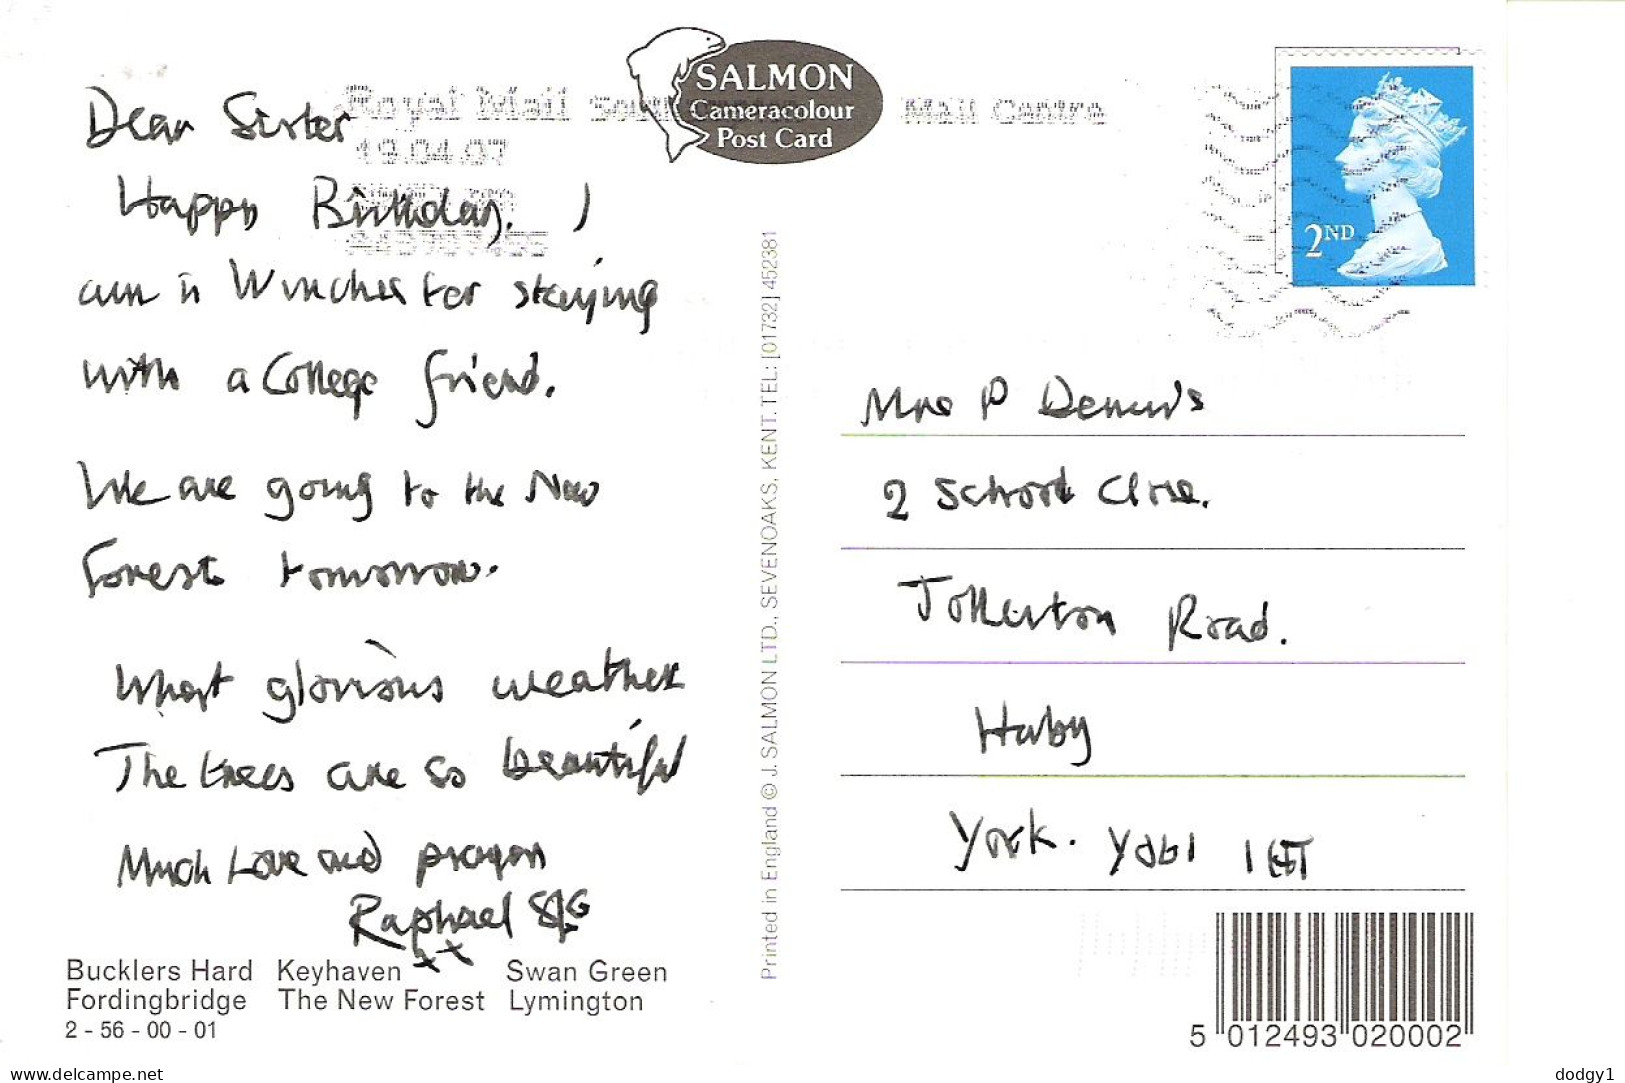 SALMON
Cameracolour
Post Card
Royal Mail
Mail Centre
19.04.07
2ND
Dear Sister
Happy Birthday. I
am in Winchester staying
with a College friend.
We are going to the New
Forest tomorrow.
What glorious weather
The trees are so beautiful
Much Love and prayers
Raphael
xx
Bucklers Hard Keyhaven Swan Green
Fordingbridge The New Forest Lymington
2 - 56 - 00 - 01
Printed in England © J. SALMON LTD., SEVENOAKS, KENT. TEL: [01732] 452381
Mrs P Dennis
2 School Close.
Tollerton Road.
Huby
York. YO61 1HT
5 012493 020002
www.delcampe.net
dodgy1